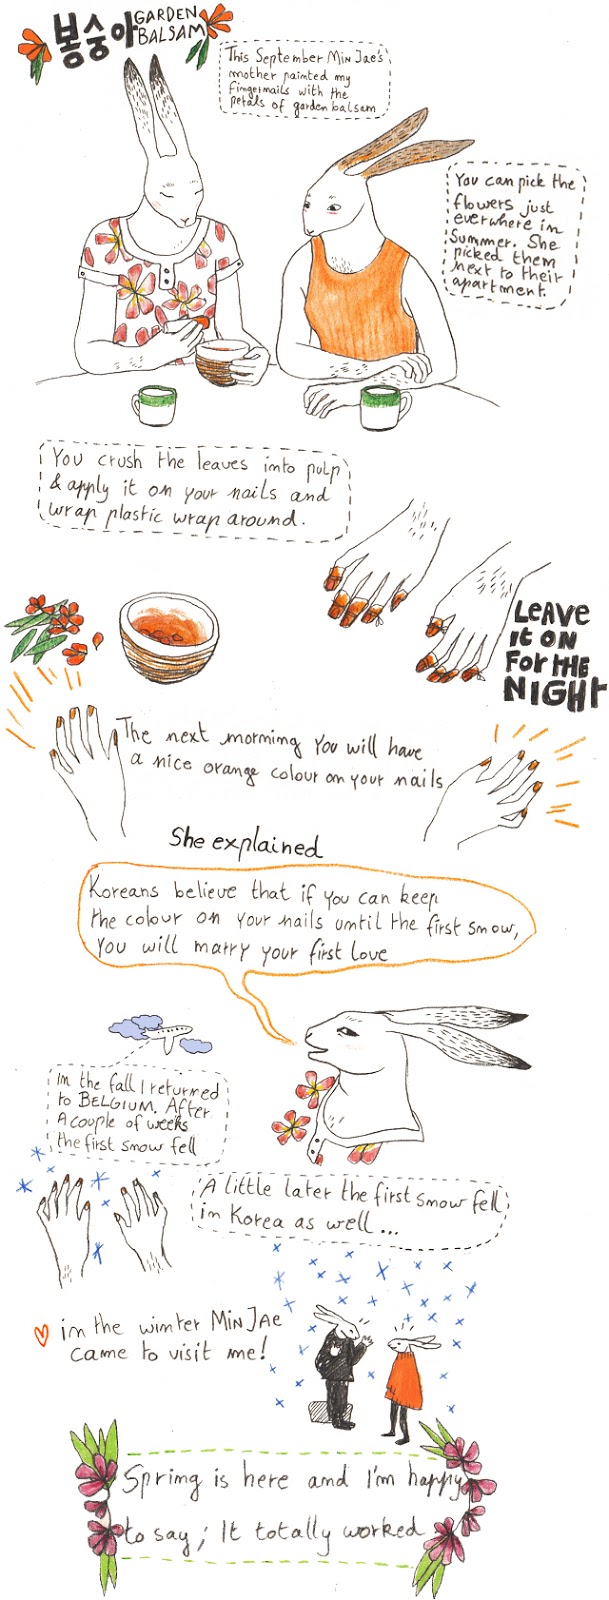 봉숭아 GARDEN
BALSAM
This September Min Jae's
mother painted my
fingernails with the
petals of garden balsam
You can pick the
flowers just
everwhere in
Summer. She
picked them
next to their
apartment.
You crush the leaves into pulp
& apply it on your nails and
wrap plastic wrap around.
LEAVE
it ON
FOR THE
NIGHT
The next morning you will have
a nice orange colour on your nails
She explained
Koreans believe that if you can keep
the colour on your nails until the first snow,
you will marry your first love
in the fall I returned
to BELGIUM. After
A couple of weeks
the first snow fell
A little later the first snow fell
in Korea as well...
in the winter Min Jae
came to visit me!
Spring is here and I'm happy
to say; It totally worked